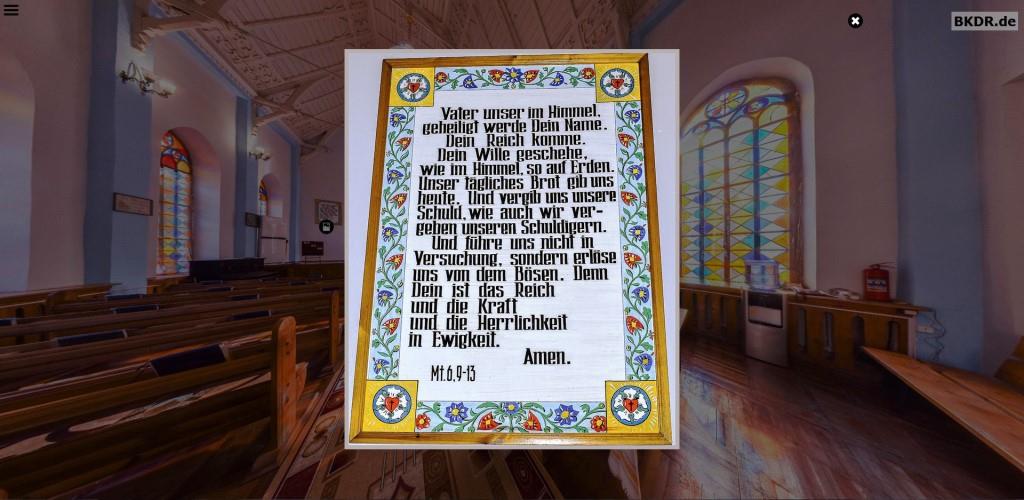 BKDR.de
Vater unser im Himmel.
geheiligt werde Dein Name.
Dein Reich komme.
Dein Wille geschehe,
wie im Himmel, so auf Erden.
Unser tägliches Brot gib uns
heute. Und vergib uns unsere
Schuld, wie auch wir ver-
geben unseren Schuldigern.
Und führe uns nicht in
Versuchung, sondern erlöse
uns von dem Bösen. Denn
Dein ist das Reich
und die Kraft
und die Herrlichkeit
in Ewigkeit.
Amen.
Mt.6,9-13